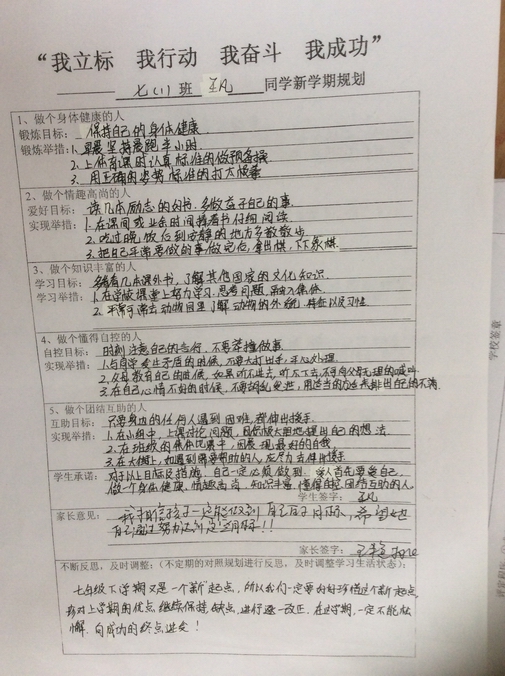 “我立标 我行动 我奋斗 我成功”
七(1)班 王凡 同学新学期规划
1、做个身体健康的人
锻炼目标：保持自己的身体健康.
锻炼举措：1.早晨坚持晨跑半小时.
2.上体育课时认真标准的做预备操.
3.用正确的姿势标准的打太极拳
2、做个情趣高尚的人
爱好目标：读几本励志的的书.多做在于自己的事.
实现举措：1.在课间或业余时间捧着书仔细阅读
2.吃过晚饭后到安静的地方多散散步
3.把自己平常要做的事做完后,拿出棋,下下象棋.
3、做个知识丰富的人
学习目标：多看几本课外书,了解其他国家的文化知识.
学习举措：1.在学校课堂上努力学习.思考问题.融入集体.
2.平常可常去动物园里了解动物的外貌.特征以及习性
4、做个懂得自控的人
自控目标：时刻注意自己的言行.不要莽撞做事.
实现举措：1.与同学发生矛盾的时候,不要大打出手,平心处理.
2.父母教育自己的时候,如果听不进去,听不下去,不得向父母无理的喊叫.
3.在自己心情不好的时候,不要胡乱发泄,用适当的方法来排出自己的不满.
5、做个团结互助的人
互助目标：只要身边的任何人遇到困难,都伸出援手.
实现举措：1.在小组中,上课讨论问题,且积极大胆地提出自己的想法.
2.在班级的集体比赛中,因展现最好的自我
3.在大街上,如遇到需要帮助的人,应尽力去伸出援手
学生承诺：对于以上目标及措施,自己一定必须做到.
做一个身体健康.情趣高尚.知识丰富.懂得自控.团结互助的人.
学生签字：王凡
家长意见：我相信孩子一定能做到自己目标,希望她
自己通过努力达到定目标!!
家长签字：
不断反思，及时调整：（不定期的对照规划进行反思，及时调整学习生活状态）：
七年级下学期又是一个新起点,所以我们一定要好好珍惜这个新起点,
针对上学期的优点,继续保持,缺点,进行逐一改正.在这学期,一定不能松
懈.向成功的终点进发!
学校签章